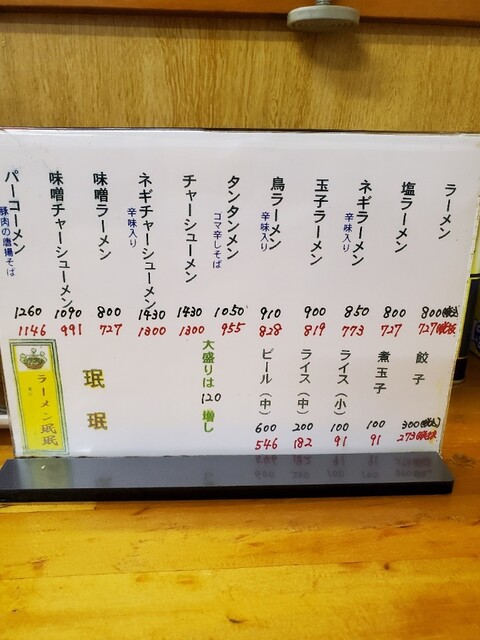 ラーメン 800(税込) 727(税抜)
塩ラーメン 800 727
ネギラーメン 850 773
辛味入り
玉子ラーメン 900 819
鳥ラーメン 910 828
辛味入り
タンタンメン 1050 955
ゴマ辛しそば
チャーシューメン 1430 1300
ネギチャーシューメン 1430 1300
辛味入り
味噌ラーメン 800 727
味噌チャーシューメン 1090 991
パーコーメン 1260 1146
豚肉の唐揚そば
餃子 300(税込) 273(税抜)
煮玉子 100 91
ライス(小) 100 91
ライス(中) 200 182
ビール(中) 600 546
大盛りは120増し
珉珉
ラーメン珉珉